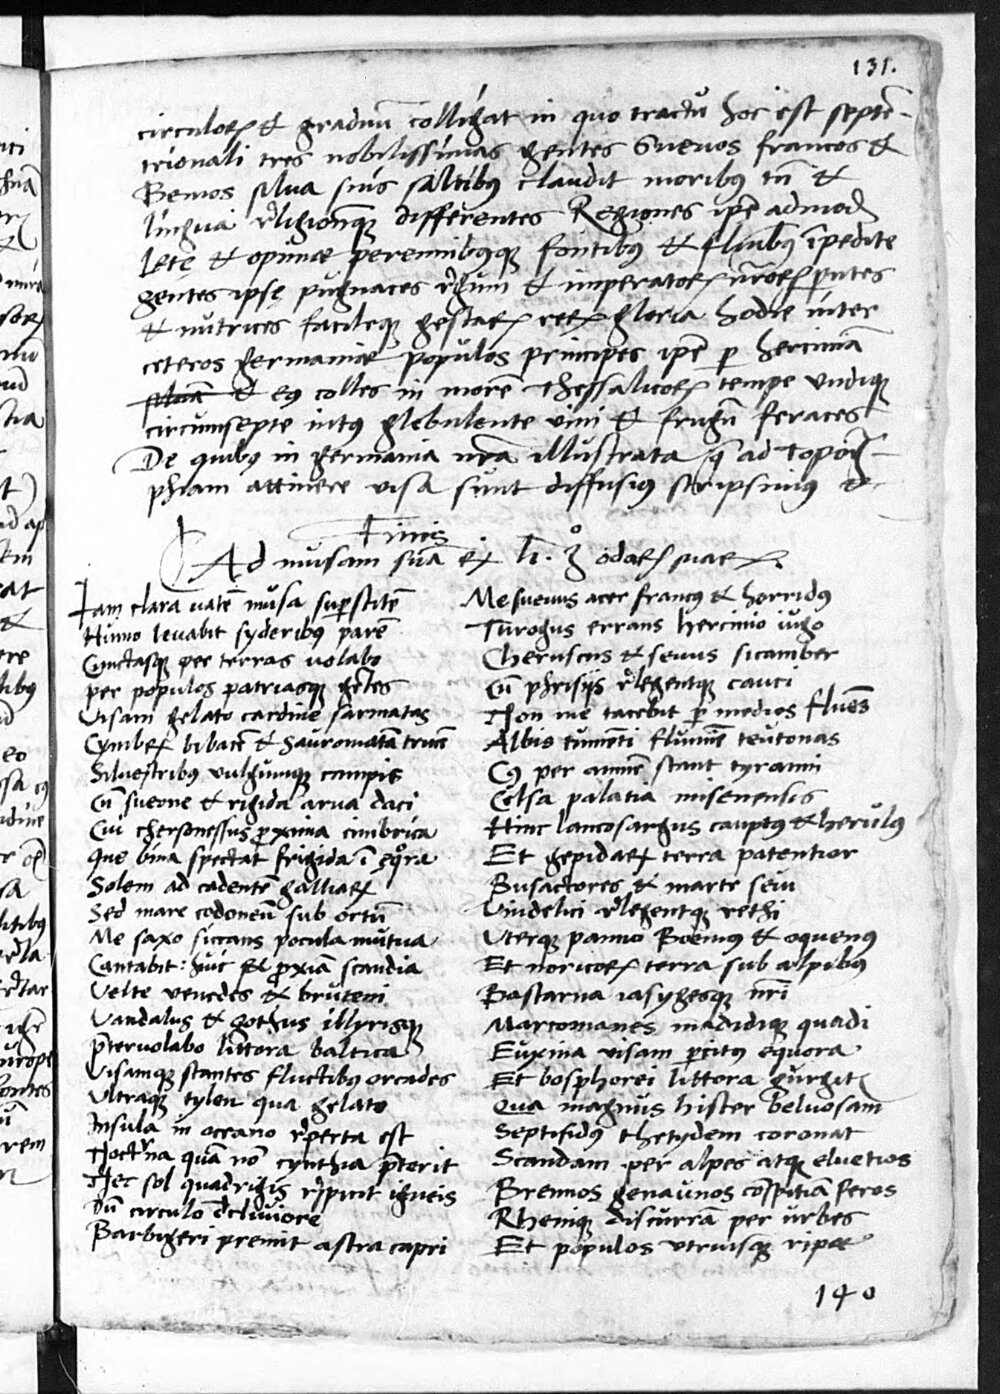 131.
circuloꝝ & graduū colligat in quo tractu hoc est septē-
trionali tres nobilissimas gentes Sueuos francos &
Bemos silua suis saltibꝰ claudit moribꝰ tn̄ &
lingua religioneqꝫ differentes Regiones ipē admod
letę & opimæ perennibusqꝫ fontibꝰ & flūibꝰ īpedite
gentes ipsę pugnaces regum & imperatoꝝ nr̄oꝝ ꝑntes
& nutrices facileqꝫ gestaꝝ reꝝ gloria hodie inter
ceteros germaniæ populos principes ipē ꝑ herciniā
siluā & eꝰ colles in morē Thessalicoꝝ tempe undiqꝫ
circumsepte intꝰ glebulente uini & frugū feraces
De quibꝰ in germania nr̄a illustrata q̄ ad Topogͣ-
phiam attinere visa sunt diffusiꝰ scripsimus &
Finis
Ad musam suā ex li. 3º odaꝝ suaꝝ
Iam clara uatē musa suꝑstitē
Hinno leuabit syderibꝰ parē
Cunctasqꝫ per terras uolabo
per populos patriasqꝫ gētes
Visam gelato cardine sarmatas
Cymbꝝ bibacē & Sauromatā trucē
Siluestribꝰ uulgumqꝫ campis
Cū sueone & rigida arua daci
Cui chersonessus ꝓxima cimbrica
Que bina spectat frigida ī eqͦra
Solem ad cadentē galliaꝝ
Sed mare codoneū sub ortū
Me saxo siccans pocula mutua
Cantabit: huic & ꝓxiā scandia
Velte venedes & bruteni
Vandalus & gothus illyrisqꝫ
p̄teruolabo littora baltica
Visamqꝫ stantes fluctibꝰ orcades
Vltraqꝫ tylen qua gelato
Insula in oceano rep̄erta est
Nocturna quā nō cynthia p̄terit
Nec sol quadrigis respicit igneis
Dū circulo decliuiore
Barbigeri premit astra capri
Me sueuus acer francꝰ & horridus
Turogus errans hercinio iugo
Cheruscus & seuus sicamber
Cū phrisijs relegentqꝫ cauci
Non me tacebit ꝑ medios fluēs
Albis tumenti flumīe teutonas
Cꝰ per amnē stant tyranni
Celsa palatia misenensis
Hinc lancosargus cauptꝰ & herulꝰ
Et gepidaꝝ terra patentior
Busactores & marte seui
Vindelici relegentqꝫ rethi
Vterqꝫ panno Boemꝰ & oquenꝰ
Et noricoꝝ terra sub alpibꝰ
Bastarna iasygesqꝫ nr̄i
Marcomanes madidiqꝫ quadi
Euxina visam ꝑcitꝰ equora
Et bosphorei littora gurgitꝭ
Qua magnus hister beluosam
Septifidꝰ thetydem coronat
Scandam per alpes atqꝫ eluetios
Brennos genaunos cōspitiā feros
Rheniqꝫ discurrā per urbes
Et populos utriusqꝫ ripæ
140